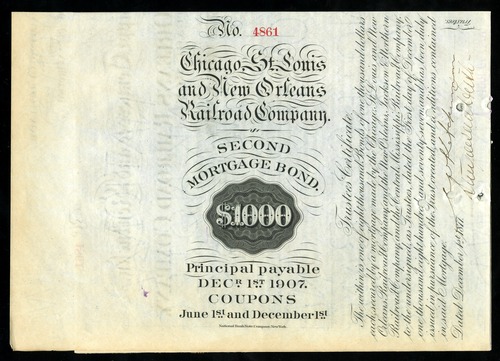 No. 4861
Chicago, St. Louis
and New Orleans
Railroad Company.
SECOND
MORTGAGE BOND.
$1000
Principal payable
DECR. 1ST 1907.
COUPONS
June 1st and December 1st
National Bank Note Company, New York.
Trustees Certificate.
The within is one of eight thousand Bonds of one thousand dollars
each, secured by a mortgage made by the Chicago, St. Louis and New
Orleans Railroad Company, and the New Orleans, Jackson & Northern
Railroad Company, and the Central Mississippi Railroad Company,
to the undersigned as Trustees, dated the First day of December
one thousand eight hundred and seventy seven, and has been duly
issued in pursuance of the Trust created and conditions contained
in said Mortgage.
Dated December 1st 1877.
Trustees.